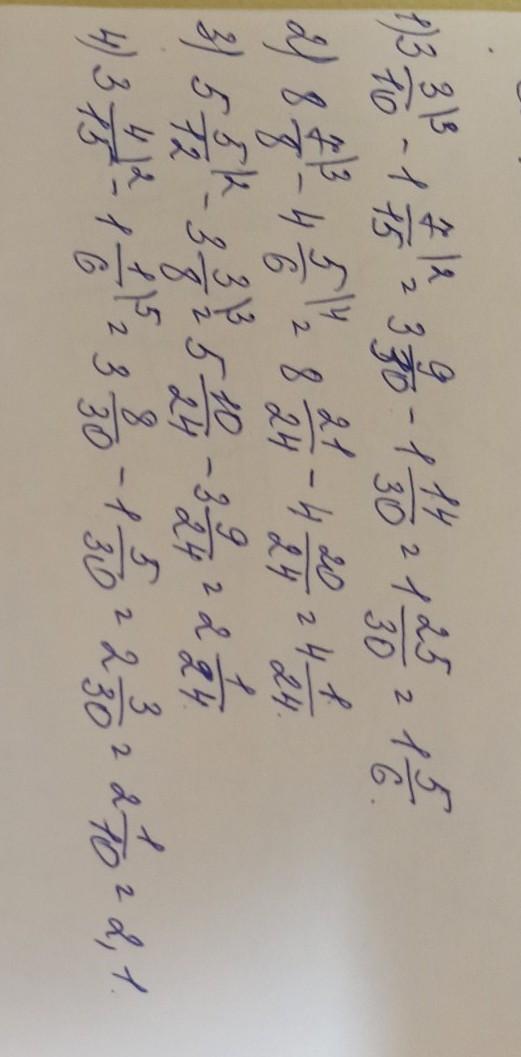 1) 3 3/10 |3 - 1 7/15 |2 = 3 9/30 - 1 14/30 = 1 25/30 = 1 5/6.
2) 8 7/8 |3 - 4 5/6 |4 = 8 21/24 - 4 20/24 = 4 1/24.
3) 5 5/12 |2 - 3 3/8 |3 = 5 10/24 - 3 9/24 = 2 1/24.
4) 3 4/15 |2 - 1 1/6 |5 = 3 8/30 - 1 5/30 = 2 3/30 = 2 1/10 = 2,1.